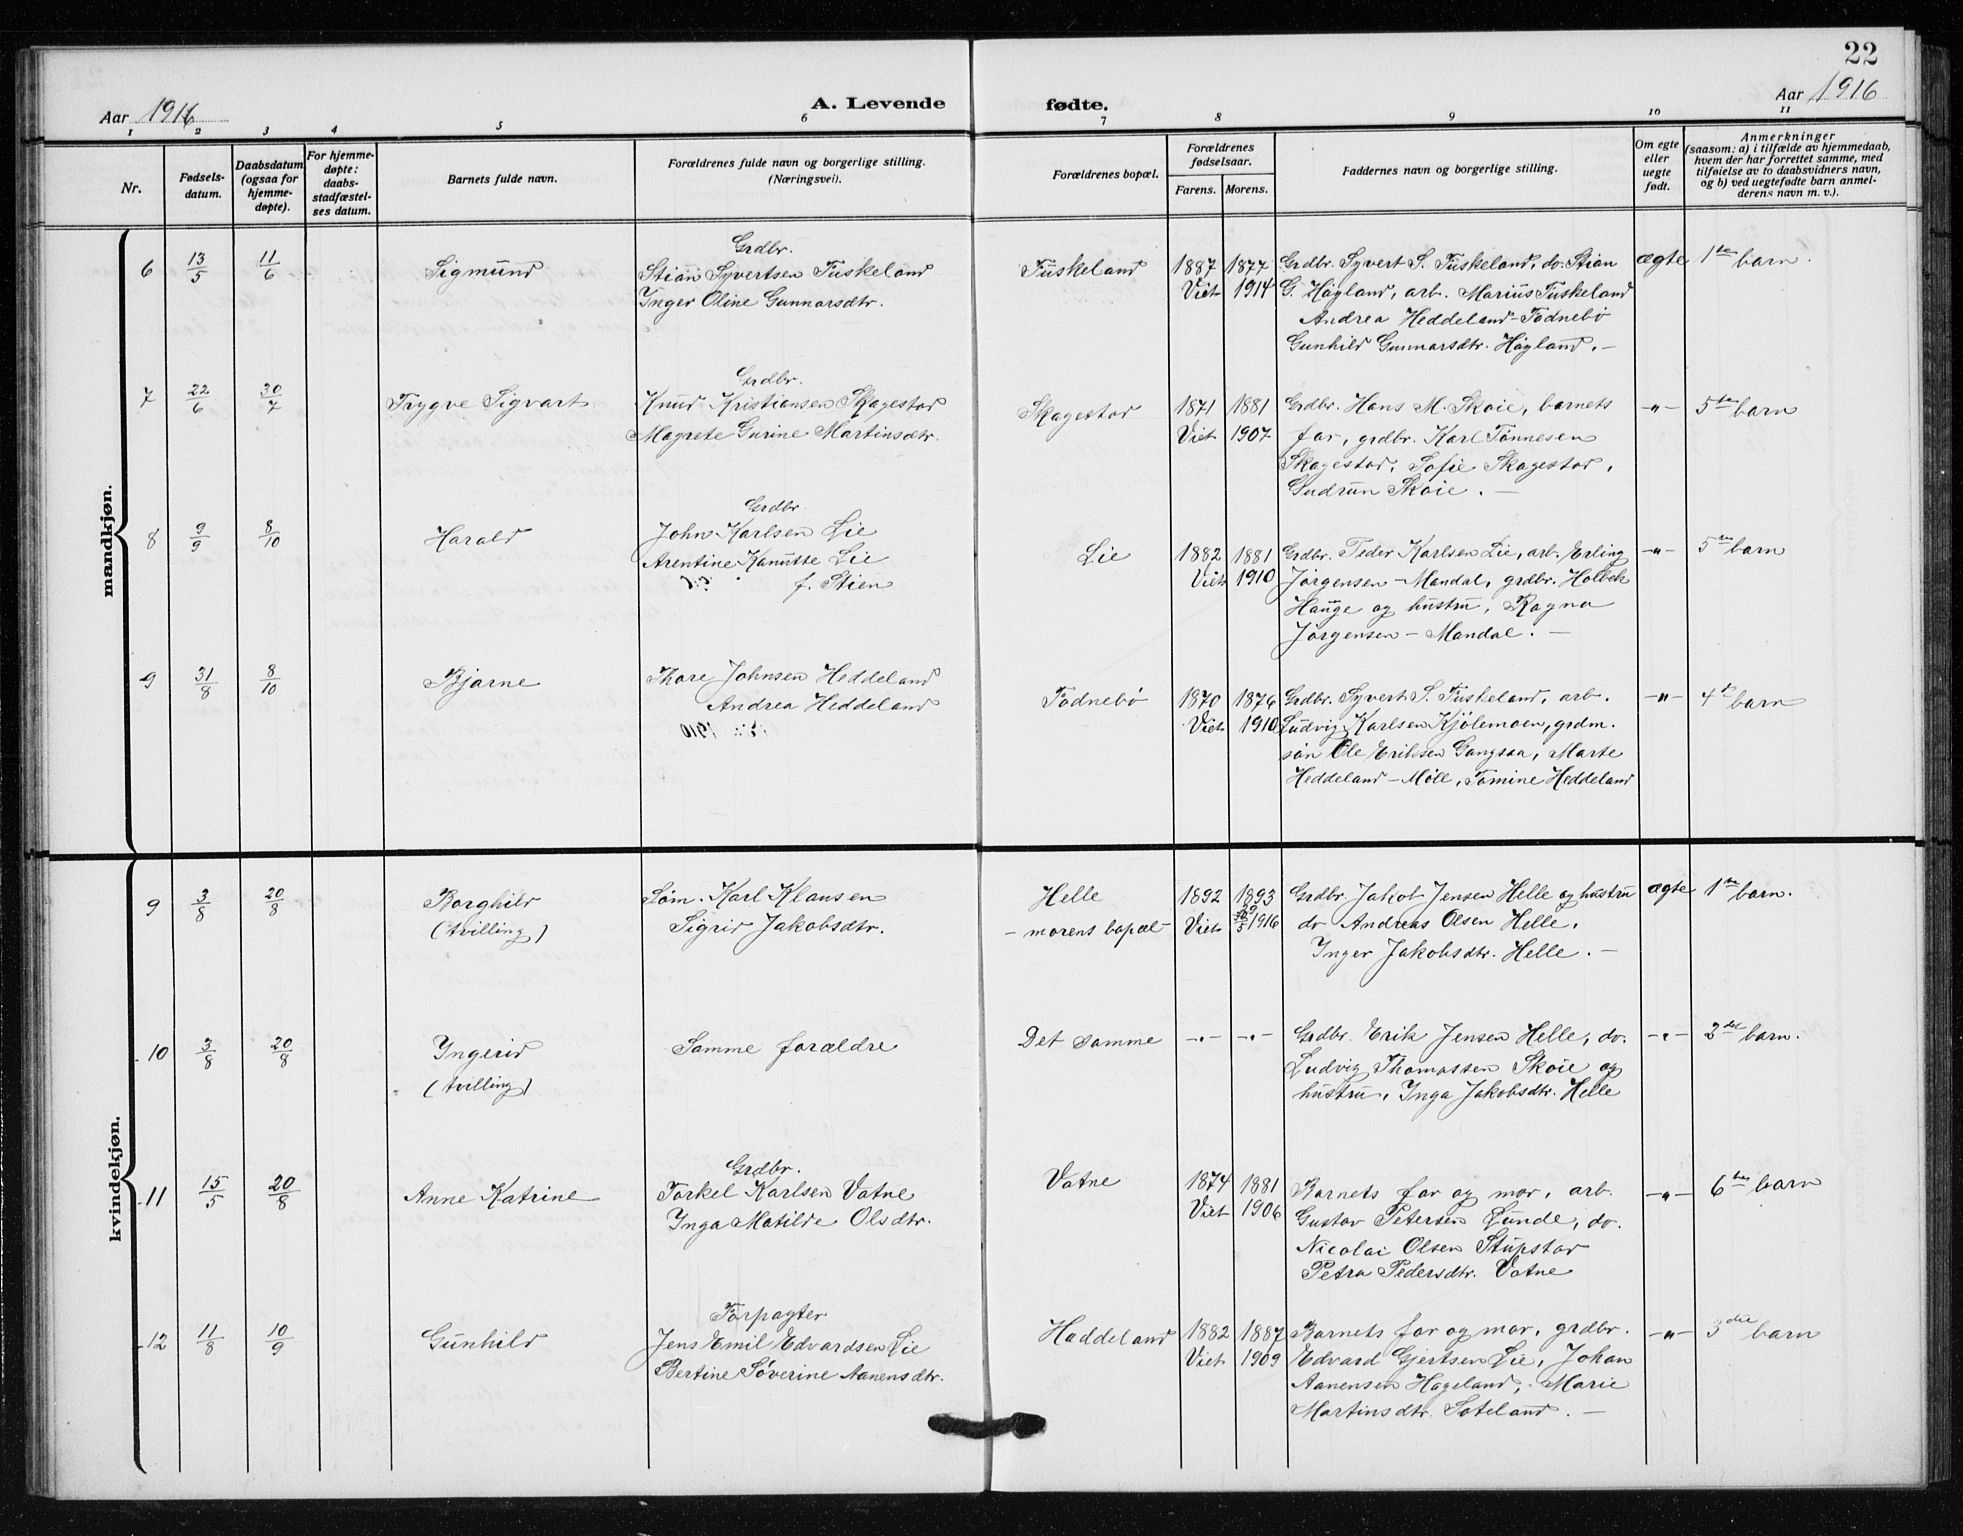 22
Aar 1916
A. Levende fødte.
Aar 1916
1 2 3 4 5 6 7 8 9 10 11
Nr.
Fødsels-
datum.
Daabsdatum
(ogsaa for
hjemme-
døpte).
For hjemme-
døpte:
daabs-
stadfæstel-
ses datum.
Barnets fulde navn.
Forældrenes fulde navn og borgerlige stilling.
(Næringsvei).
Forældrenes bopæl.
Forældrenes
fødselsaar.
Farens. Morens.
Faddernes navn og borgerlige stilling.
Om egte
eller
uegte
født.
Anmerkninger
(saasom: a) i tilfælde av hjemmedaab,
hvem der har forrettet samme, med
tilføielse av to daabsvidners navn,
og b) ved uegtefødte barn anmel-
derens navn m. v.).
mandkjøn.
6
13/5
11/6
Sigmund
Grdbr.
Stian Syvertsen Tuskeland
Inger Oline Gunnarsdtr.
Tuskeland
1887 1877
Viet 1914
Grdbr. Syvert S. Tuskeland, do. Stian
G. Høgland, arb. Marius Tuskeland
Andrea Heddeland-Todnebø
Gunhild Gunnarsdtr. Høgland. –
ægte
1ste barn.
7
22/6
30/7
Trygve Sigvart
Grdbr.
Knud Kristiansen Skagestad
Magrete Gurine Martinsdtr.
Skagestad
1871 1881
Viet 1907
Grdbr. Hans M. Skoie, barnets
far, grdbr. Karl Tønnesen
Skagestad, Sofie Skagestad,
Gudrun Skoie. –
–"–
5te barn
8
9/9
8/10
Harald
Grdbr.
John Karlsen Lie
Arentine Kanutte Lie
f. Stien
Lie
1882 1881
Viet 1910
Grdbr. Peder Karlsen Lie, arb. Erling
Jørgensen – Mandal, grdbr. Holbek
Hauge og hustru, Ragna
Jørgensen – Mandal. –
–"–
5te barn
9
31/8
8/10
Bjarne
Thore Johnsen Heddeland
Andrea Heddeland
Todnebø
1870 1876
Viet 1910
Grdbr. Syvert S. Tuskeland, arb.
Ludvig Karlsen Kjølemoen, grdm.
søn Ole Eriksen Gangsaa, Marte
Heddeland – Møll, Tomine Heddeland
–"–
4de barn
kvindekjøn.
9
3/8
20/8
Borghild
(tvilling)
Søm. Karl Klausen
Sigrid Jakobsdtr.
Helle
– morens bopæl –
1892 1893
Viet 1916
Grdbr. Jakob Jensen Helle og hustru
do Andreas Olsen Helle,
Inger Jakobsdtr. Helle. –
ægte
1ste barn.
10
3/8
20/8
Ingerid
(tvilling)
Samme forældre
Det samme
–"– –"–
Grdbr. Erik Jensen Helle, do.
Ludvig Thomassen Skoie og
hustru, Inga Jakobsdtr. Helle
–"–
2det barn.
11
15/5
20/8
Anne Katrine
Grdbr.
Torkel Karlsen Vatne
Inga Matilde Olsdtr.
Vatne
1874 1881
Viet 1906
Barnets far og mor, arb.
Gustav Petersen Lunde, do.
Nicolai Olsen Stupstad
Petra Pedersdtr. Vatne
–"–
6te barn
12
11/8
10/9
Gunhild
Forpagter
Jens Emil Edvardsen Lie
Bertine Søverine Aanensdtr.
Haddeland
1882 1887
Viet 1909
Barnets far og mor, grdbr.
Edvard Gjertsen Lie, Johan
Aanensen Hageland, Marie
Martinsdtr. Soteland. –
–"–
3die barn